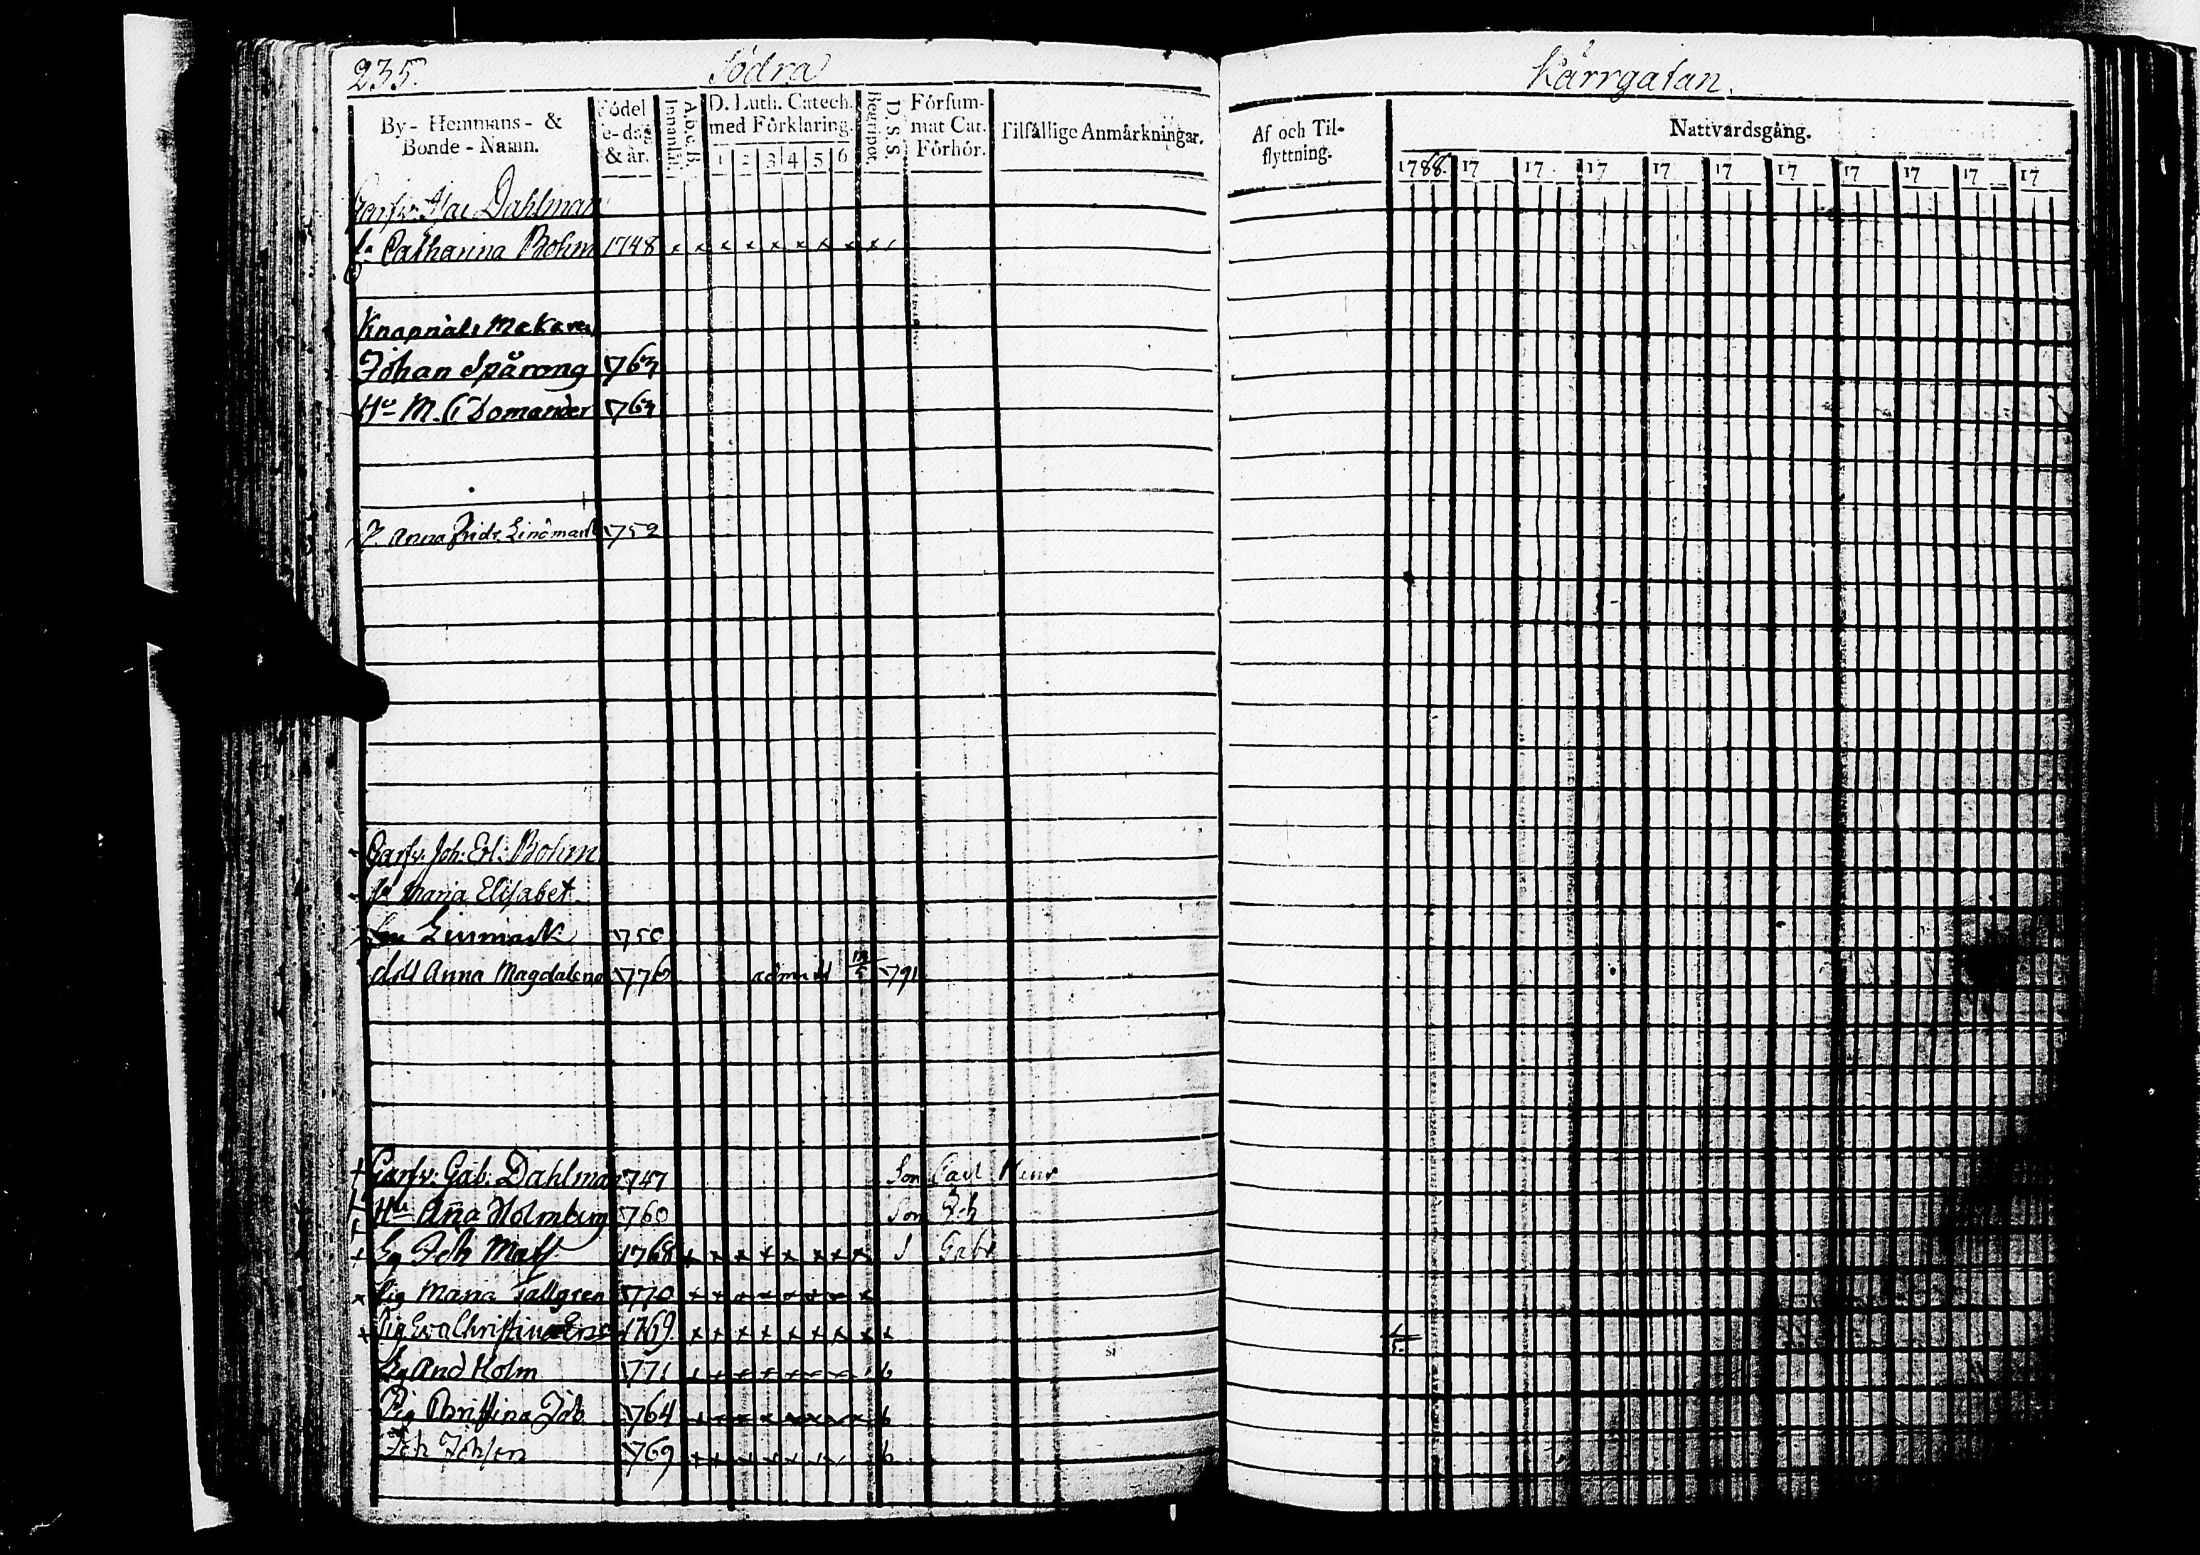 235. Södra
By- Hemmans- & Bonde-Namn.
Födel e-dag & år.
A.b.c.B. Innanläs.
D. Luth. Catech. med Förklaring.
1 2 3 4 5 6
D. S. S. Begripot.
Försum- mat Cat. Förhör.
Tilfällige Anmärkningar.
Garfv: Isac Dahlman
Catharina Bohm 1748 x x x x x x x x x
Knapnåls Makaren
Johan Spårong 763
Hu M. C Domander 763
J. Anna Fridr. Lindmark 752
Garfv: Joh: Erl: Bohm
Maria Elisabet
Linmark 750
doll Anna Magdalena 776 admitt 791
Garfv: Gab: Dahlman 747 Son Carl
Hu Ana Holmberg 760 Son Joh
Joh Mass 1768 x x x x x x x x S Gabr
Pig Maria Tallgren 770 x x x x x x x x
Pig Eva Christina 1769 x x x x x x x x x
And Holm 771 6
Pig Christina Job 764 6
Joh Johsen 769 6
Kärrgatan.
Af och Til- flyttning.
Nattvardsgång.
1788. 17 17 17 17 17 17 17 17 17 17